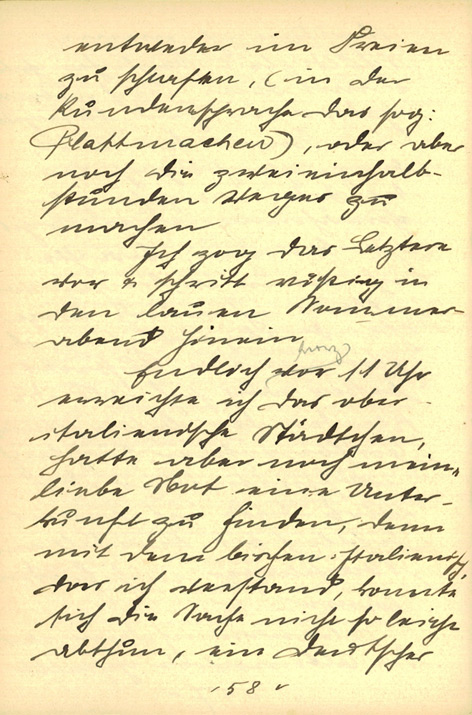 entweder im Freien
zu schlafen, (in der
Kundensprache das sog:
Plattmachen), oder aber
noch die zweieinhalb-
stunden Weges zu
machen
Ich zog das Letztere
vor & schritt rüstig in
den lauen Sommer-
abend hinein
kurz
Endlich vor 11 Uhr
erreichte ich das ober-
italienische Städtchen,
hatte aber noch meine
liebe Not eine Unter-
kunft zu finden, denn
mit dem bischen Italienisch,
das ich verstand, konnte
sich die Sache nicht so leicht
abthun, ein deutscher
58